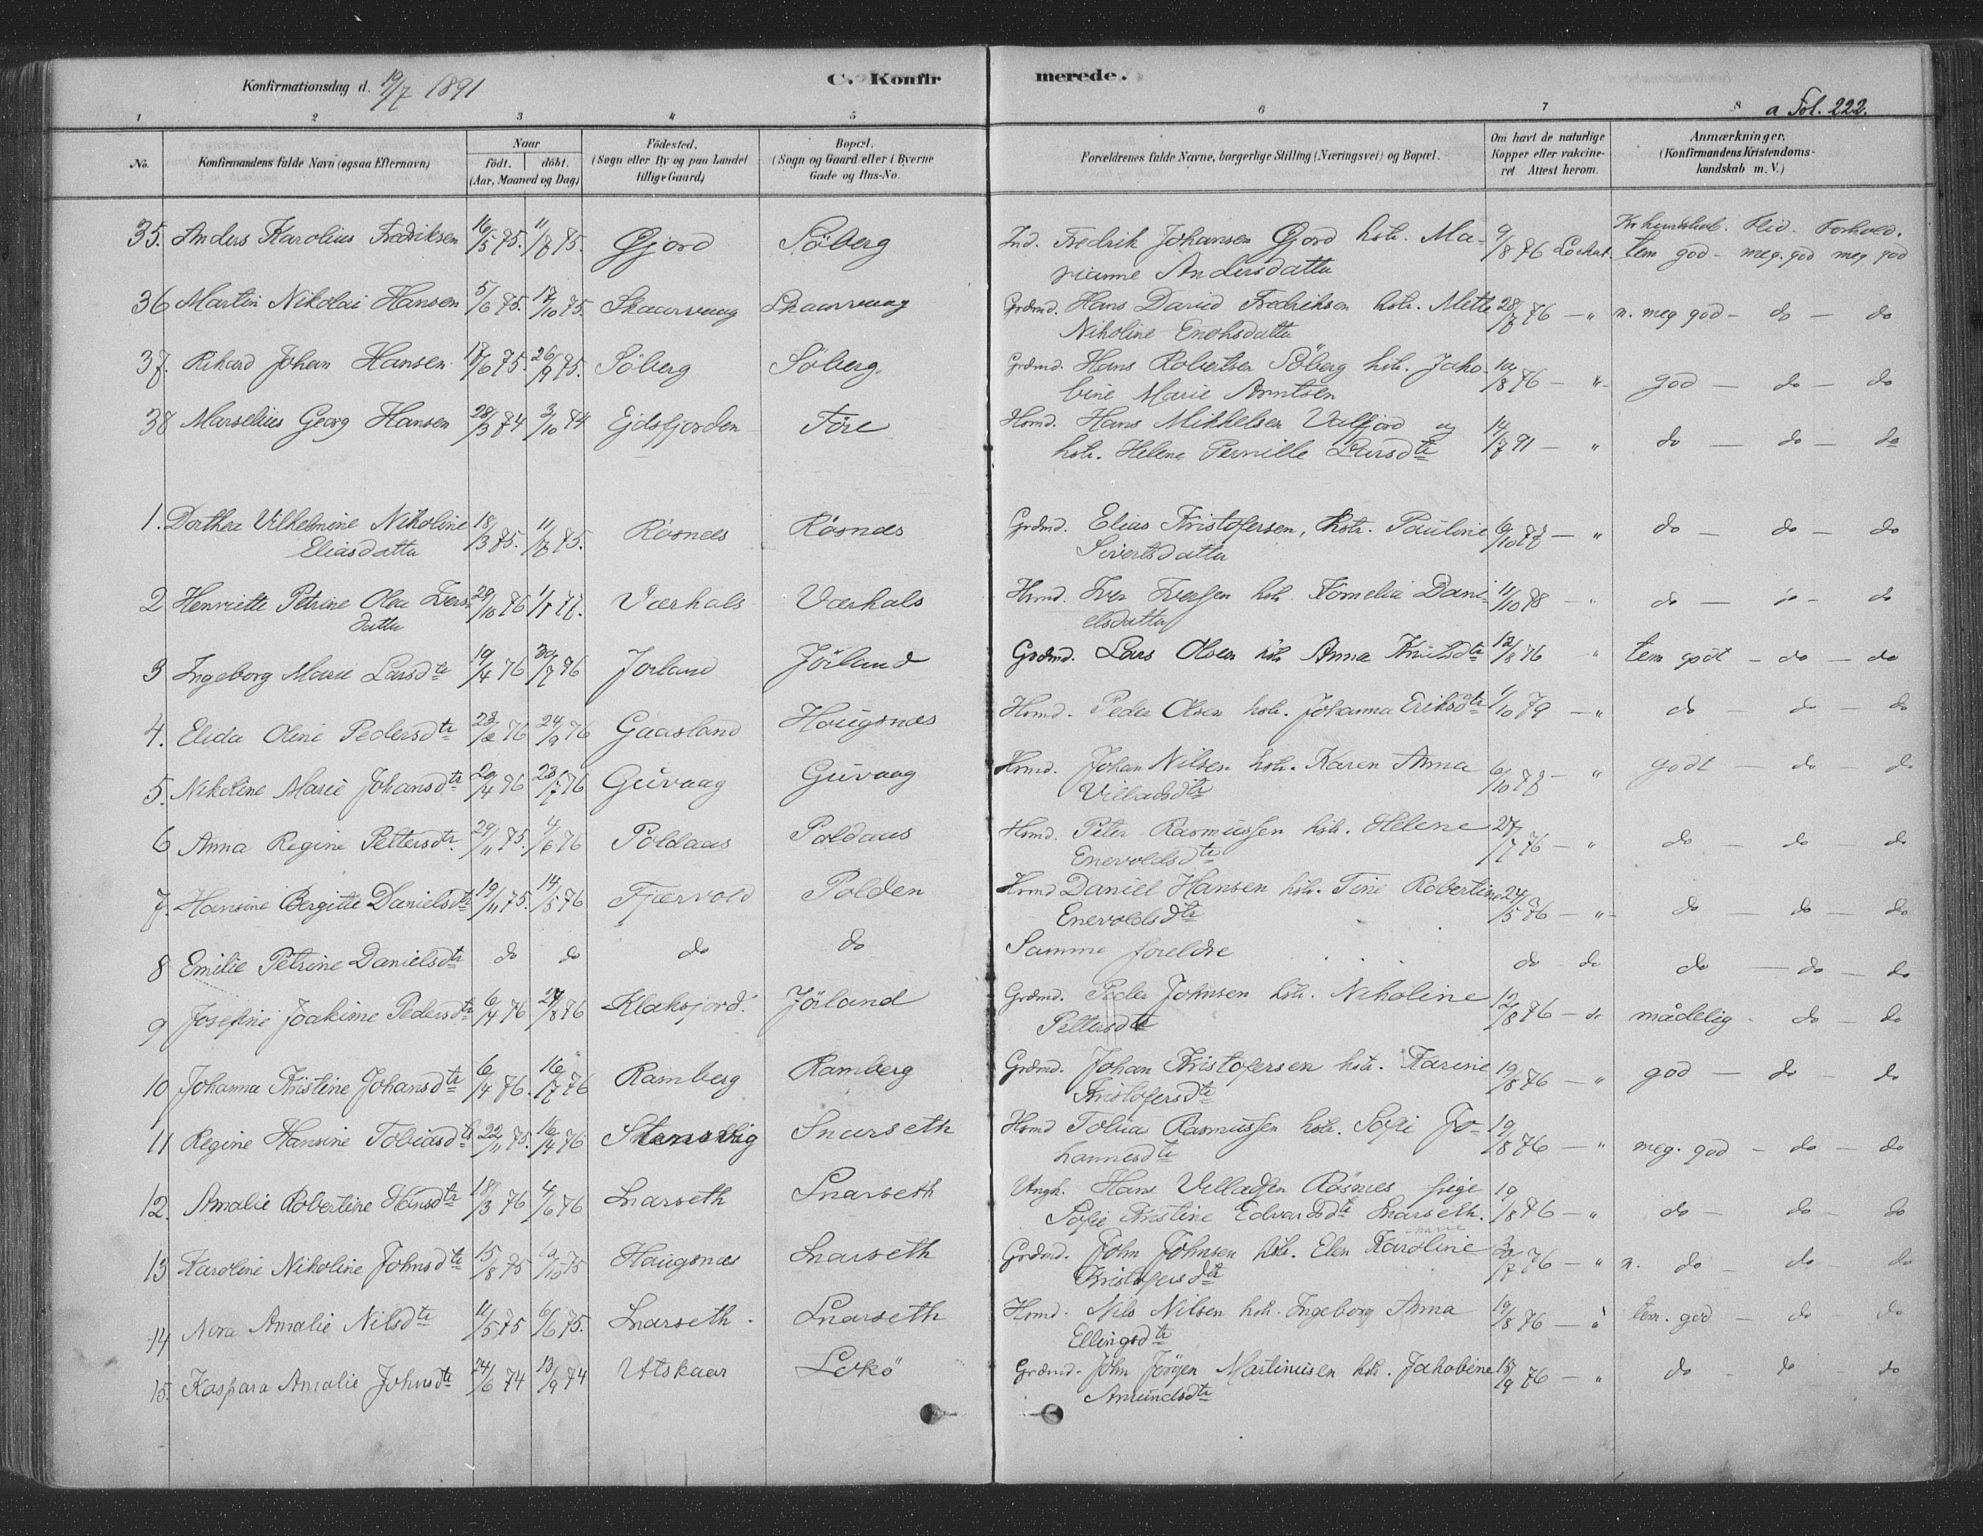 Konfirmationsdag d. 19/7 1891
C. Konfirmerede.
a Fol. 222.
1 2 3 4 5 6 7 8
No. Konfirmandens fulde Navn (ogsaa Efternavn) Naar født. døbt. (Aar, Maaned og Dag) Fødested. (Sogn eller By og paa Landet tillige Gaard) Bopæl. (Sogn og Gaard eller i Byerne Gade og Hus-No. Forældrenes fulde Navne, borgerlige Stilling (Næringsvei) og Bopæl. Om havt de naturlige Kopper eller vakcineret Attest herom. Anmærkninger. (Konfirmandens Kristendomskundskab m. V.)
Kr. kundskab. Flid. Forhold.
35. Anders Karolius Fredriksen 16/5 75. 11/7 75. Gjord Söberg Ind. Fredrik Johansen Gjord hstr. Ma- 9/8 76 tem god - meg. god meg god
rianne Andersdatter
36 Martin Nikolai Hansen 5/6 75. 17/10 75. Skaarvaag Skaarvaag Grdmd. Hans David Fredriksen hstr. Mette 28/7 76 — " n. meg god - do - do
Nikoline Enoksdatter
37. Rikard Johan Hansen 17/6 75. 26/9 75. Söberg Söberg. Grdmd. Hans Robertsen Söberg hstr. Jako- 10/8 76 — " god - do - do
bine Marie Arntsen
38 Marselius Georg Hansen 28/3 74 3/10 74 Ejdsfjorden Före Hsmd. Hans Mikkelsen Valfjord og 14/7 91 — " do - do - do
hstr. Helene Pernille Larsdtr
1. Dorthea Vilhelmine Nikoline 18/3 75. 11/7 75. Rösnæs Rösnæs Grdmd. Elias Kristofersen, hstr. Pauline 6/10 78 — " do - do - do
Eliasdatter Sivertsdatter
2 Henriette Petrine Olea Ivers- 29/10 76 1/1 77. Værhals Værhals Hsmd. Iver Iversen hstr. Kornelia Dani- 11/10 78 - " do - do - do
datter elsdatter
3 Ingeborg Marie Larsdtr 19/4 76 30/7 76 Jörland Jörland Grdmd. Lars Olsen hstr Anna Knutsdtr 12/8 76 " tem godt - do - do
4. Elida Oline Pedersdtr 23/2 76 24/9 76 Gaasland Hougsnæs Hsmd. Peder Olsen hstr. Johanna Eriksdtr 1/10 79 — " do - do - do
5. Nikoline Marie Johansdtr 20/4 76 23/7 76 Guvaag Guvaag Hsmd. Johan Nilsen hstr. Karen Anna 6/10 78 — " godt - do - do
Villadsdtr
6 Anna Regine Pettersdtr. 29/11 75. 4/6 76 Poldaas Poldaas Hsmd. Peter Rasmussen hstr. Helene 27/7 76 — " do - do - do
Enevoldsdtr
7. Hansine Bergitte Danielsdtr 19/11 75. 14/5 76 Fjærvold Polden Hsmd Daniel Hansen hstr. Tine Robertine 24/5 76 — " do - do - do
Enevoldsdtr
8 Emilie Petrine Danielsdtr do do do do Samme foreldre do - do do - do - do
9 Josefine Joakime Pedersdtr 6/4 76 27/8 76 Klaksjord. Jörland Grdmd. Peder Johnsen hstr. Nikoline 12/8 76 - do mådelig - do - do
Pettersdtr
10 Johanna Kristine Johansdtr 6/4 76. 16/7 76 Ramberg Ramberg Grdmd. Johan Kristofersen hstr. Karine 19/8 76 — " god - do - do
Kristofersdtr
11 Regine Hansine Tobiasdtr 22/11 75. 16/4 76 Snarseth Hsmd Tobias Rasmussen hstr. Sofie Jo- 19/8 76 — " meg. god - do - do
hannesdtr
12. Amalie Robertine Hansdtr 18/3 76 4/6 76 Snarseth Snarseth Ungk. Hans Villadsen Rösnes pige 19/8 76 — " do - do - do
Sofie Kristine Edvardsdtr Snarseth.
13 Karoline Nikoline Johnsdtr 15/8 75 10/10 75 Haugsnæs Snarseth Grdmd. John Johnsen hstr. Elen Karoline Marie 30/7 76 — " n. do - do - do
Kristofersdtr
14 Nora Amalie Nilsdtr 11/5 75 6/6 75. Snarseth. Snarseth Hsmd. Nils Nilsen hstr. Ingeborg Anna 19/8 76 — " tem. god - do - do
Ellingsdtr
15. Kaspara Amalie Johnsdtr 24/6 74 13/9 74 Utskaar Lokö Grdmd. John Jörgen Martinusen hstr. Jakobine 15/9 76 — " do - do - do
Amundsdtr